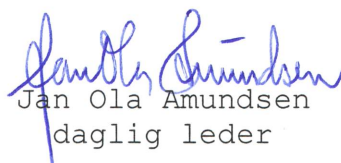 Jan Ola Amundsen
Jan Ola Amundsen
daglig leder